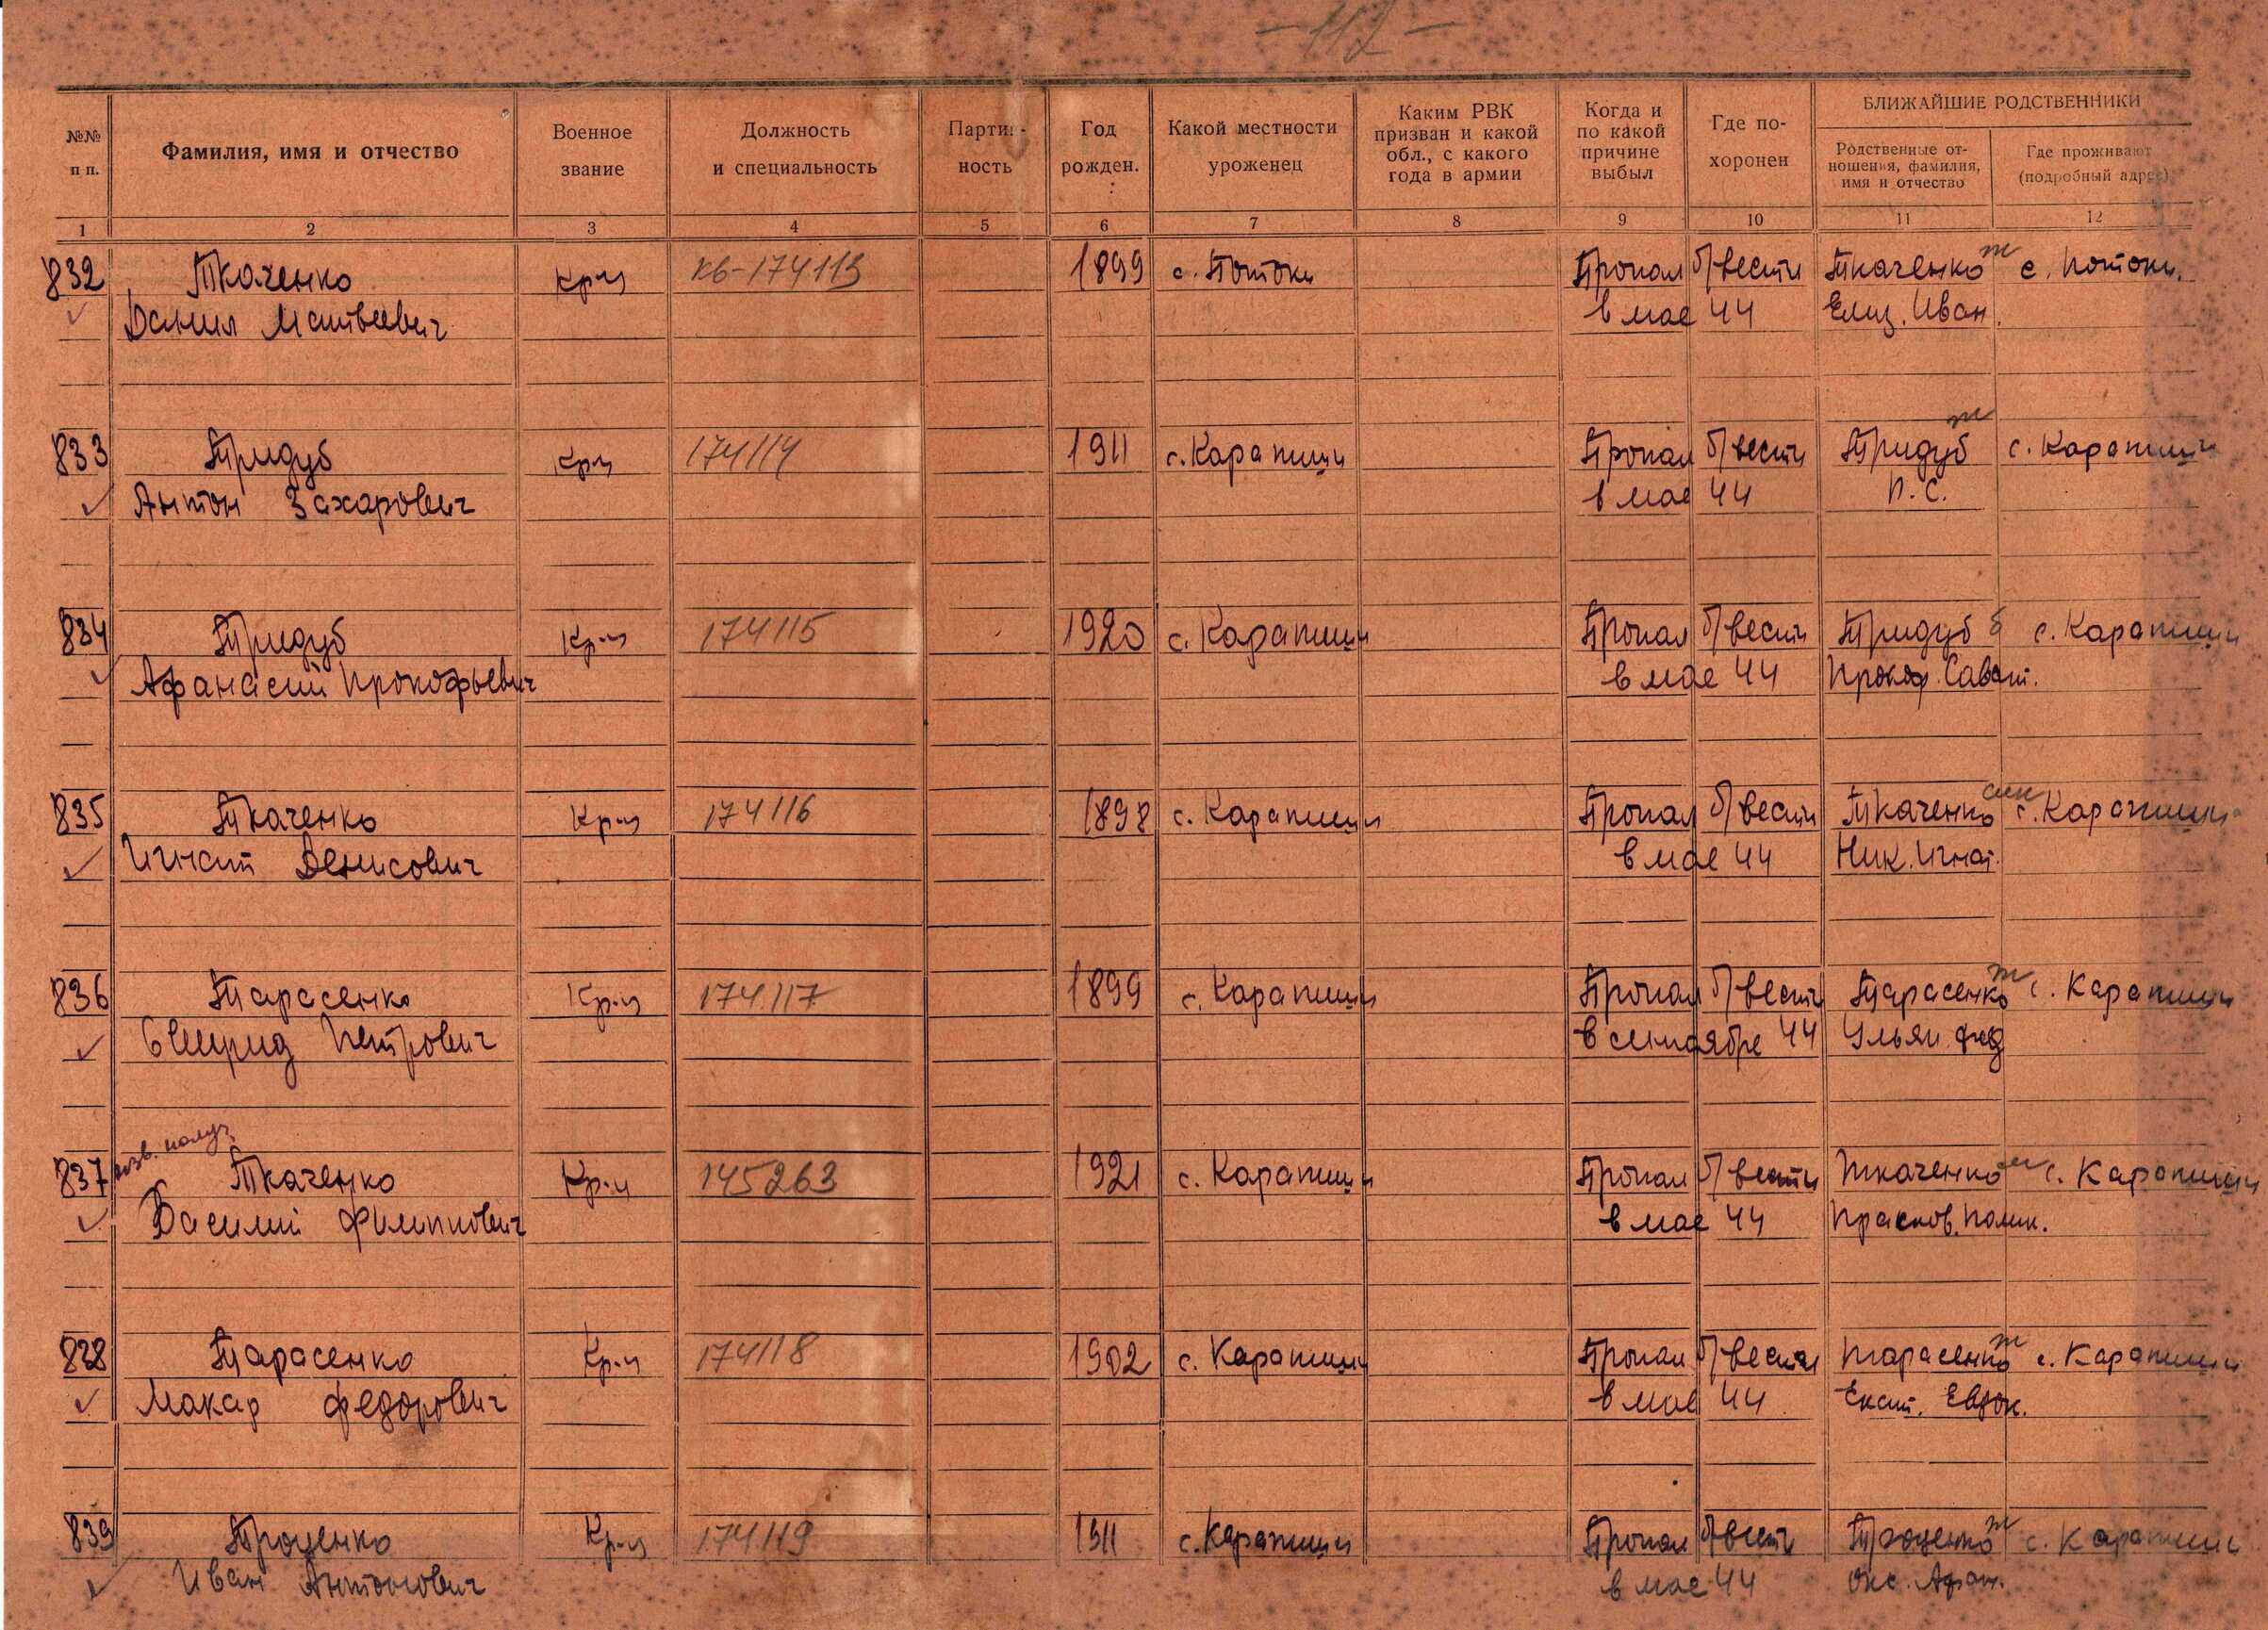 - 112 -
№№ п п.
Фамилия, имя и отчество
Военное звание
Должность и специальность
Партий- ность
Год рожден.
Какой местности уроженец
Каким РВК призван и какой обл., с какого года в армии
Когда и по какой причине выбыл
Где по- хоронен
БЛИЖАЙШИЕ РОДСТВЕННИКИ
Родственные от- ношения, фамилия, имя и отчество
Где проживают (подробный адрес)
1 2 3 4 5 6 7 8 9 10 11 12
832 Ткаченко Кр-ц кв-174113 1899 с. Потоки Пропал б/вести Ткаченко ж с. Потоки.
Данил Матвеевич в мае 44 Елиз. Иван.
833 Тридуб Кр-ц 174114 1911 с. Карапиши Пропал б/вести Тридуб ж с. Карапиши
Антон Захарович в мае 44 П. С.
834 Тридуб Кр-ц 174115 1920 с. Карапиши Пропал б/вести Тридуб б с. Карапиши
Афанасий Прокофьевич в мае 44 Прокоф. Сават.
835 Ткаченко Кр-ц 174116 1898 с. Карапиши Пропал б/вести Ткаченко син с. Карапиши
Игнат Денисович в мае 44 Ник. Игнат.
836 Тарасенко Кр-ц 174117 1899 с. Карапиши Пропал б/вести Тарасенко ж с. Карапиши
Петрович в сентябре 44 Ульян. Фед
изв. получ.
837 Ткаченко Кр-ц 145263 1921 с. Карапиши Пропал б/вести Ткаченко м с. Карапиши
Василий Филиппович в мае 44 Прасков. Полик.
838 Тарасенко Кр-ц 174118 1902 с. Карапиши Пропал б/вести Тарасенко ж с. Карапиши
Макар Федорович в мае 44 Екат. Евдок.
839 Троценко Кр-ц 174119 1911 с. Карапиши Пропал б/вести Троценко ж с. Карапиши
Иван Антонович в мае 44 Окс. Афан.